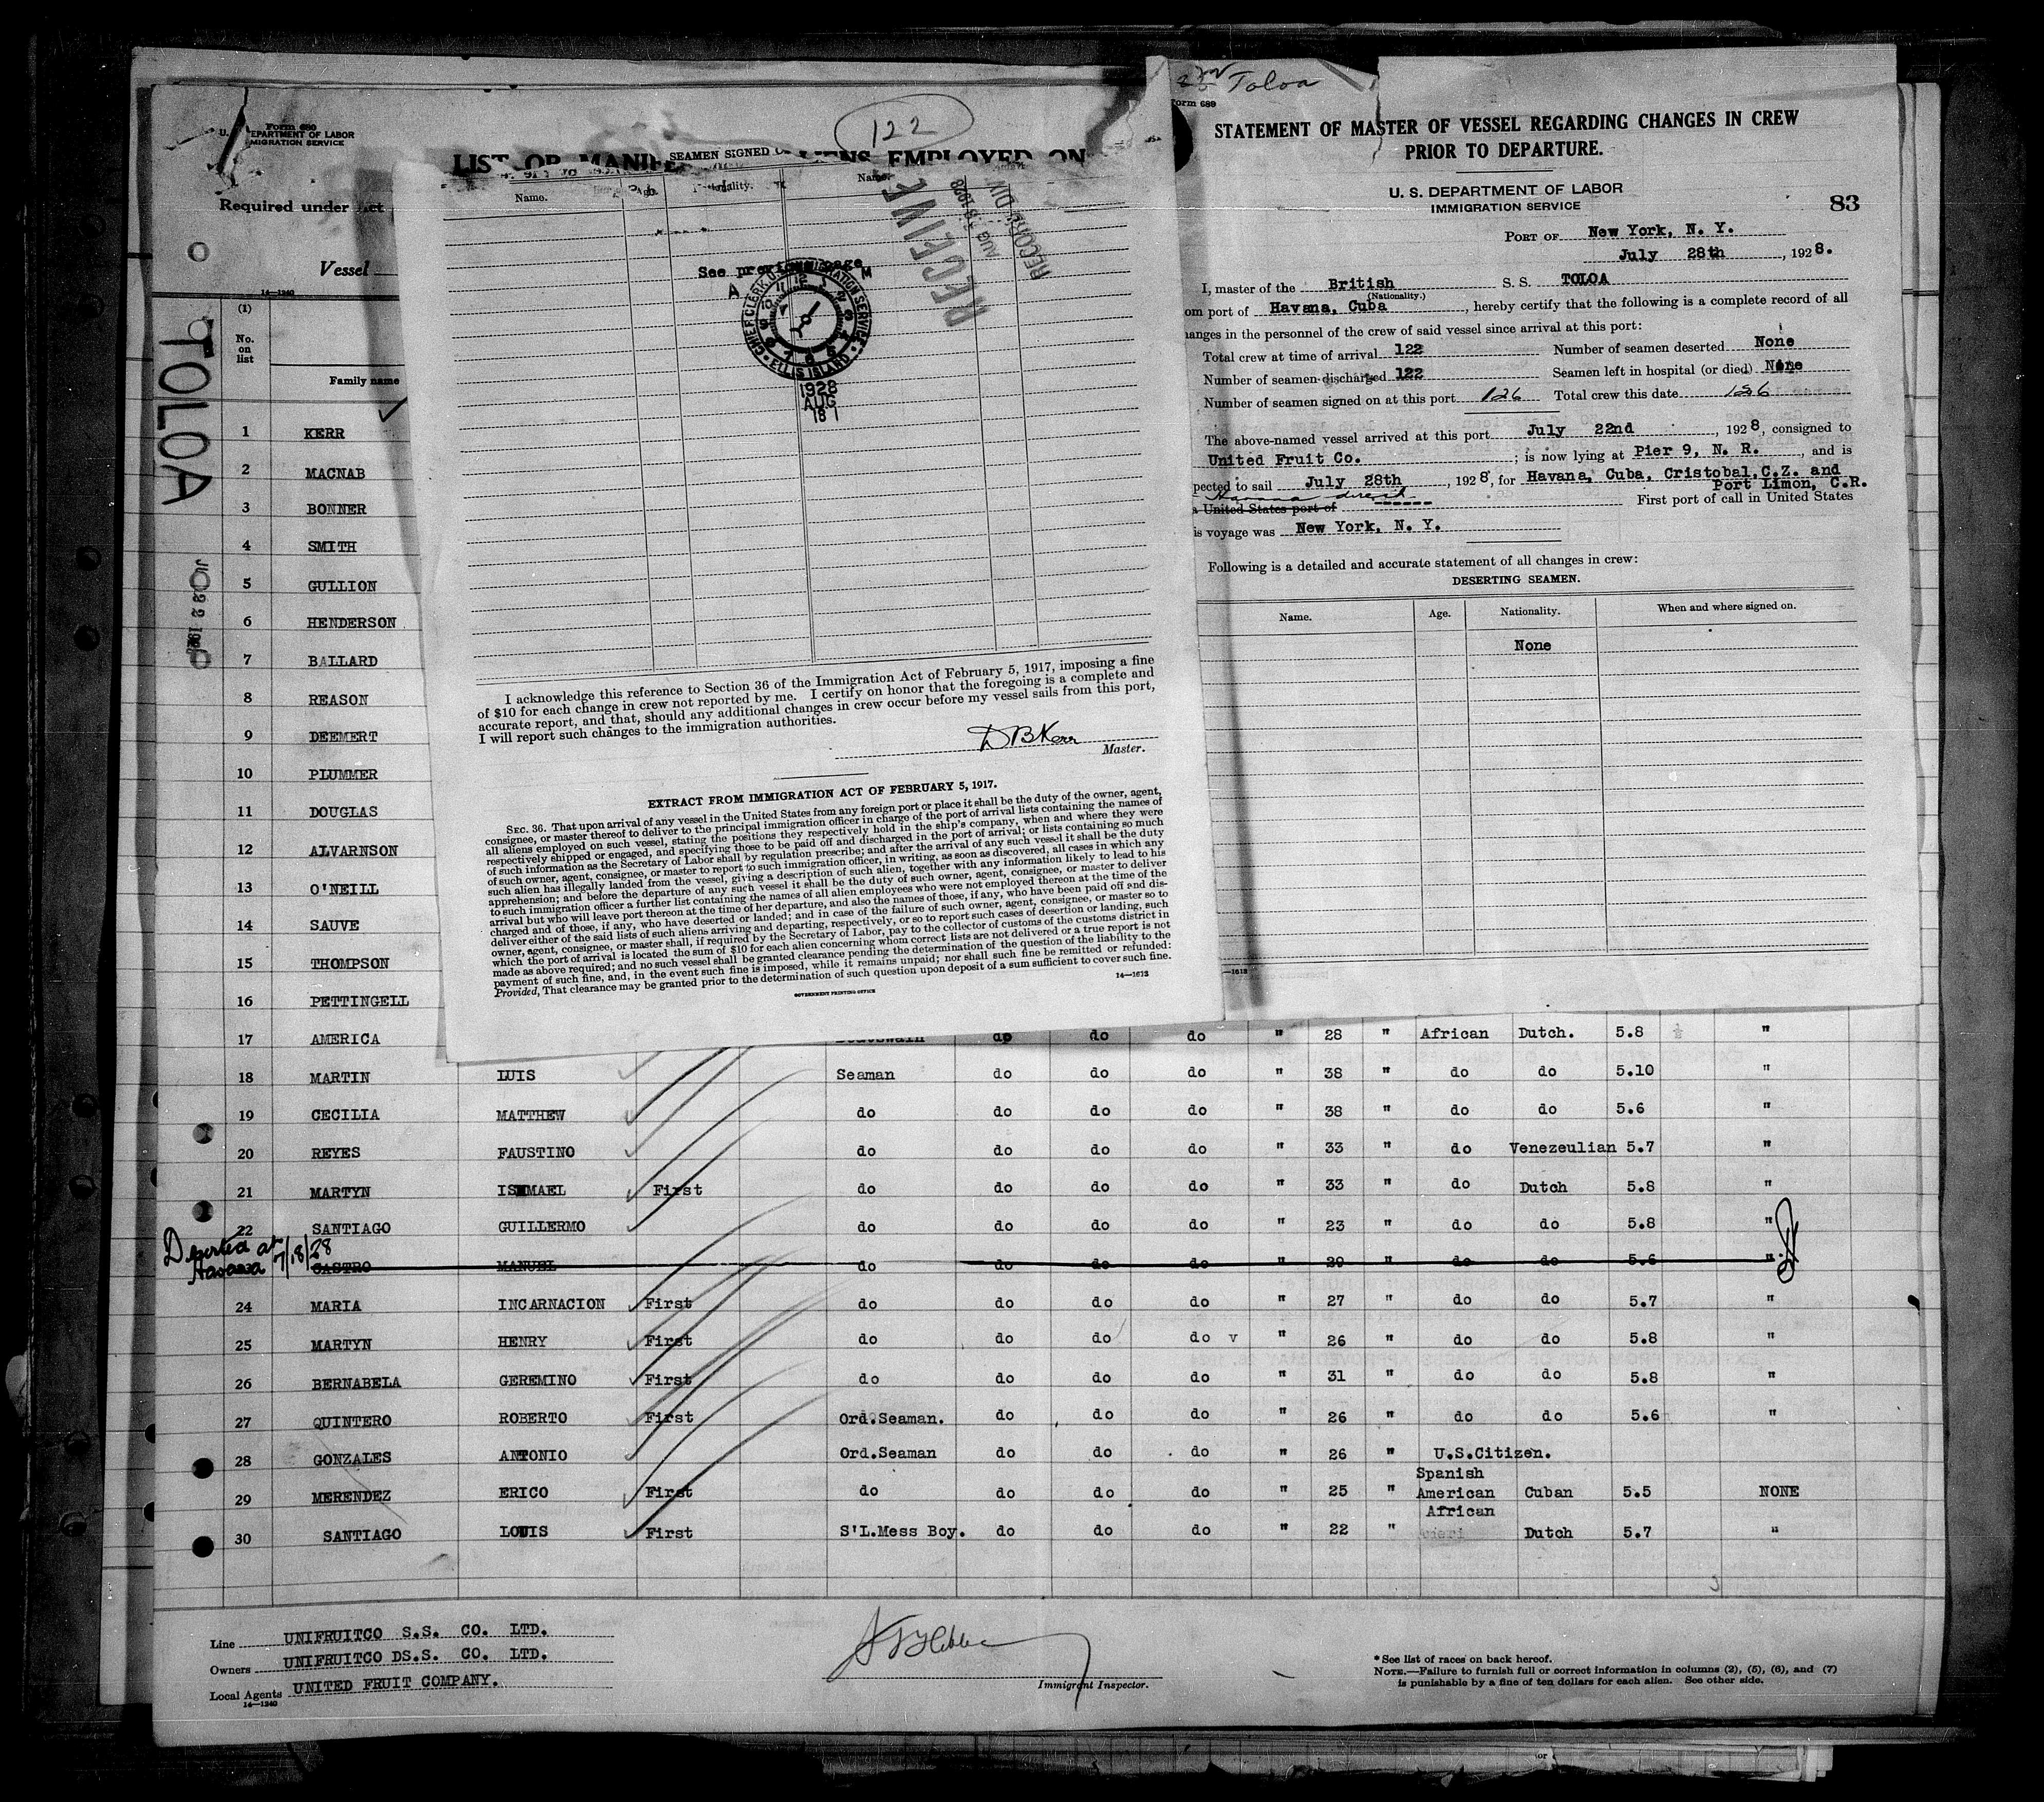 Form 680
U. S. DEPARTMENT OF LABOR
IMMIGRATION SERVICE
122
LIST OR MANIFE
SEAMEN SIGNED
ALIENS EMPLOYED ON
Required under Act
Vessel
14—1240
TOLOA
(1)
No.
on
list
Family name
1 KERR
2 MACNAB
3 BONNER
4 SMITH
5 GULLION
6 HENDERSON
7 BALLARD
8 REASON
9 DEEMERT
10 PLUMMER
11 DOUGLAS
12 ALVARNSON
13 O'NEILL
14 SAUVE
15 THOMPSON
16 PETTINGELL
17 AMERICA Boatswain do do do " 28 " African Dutch. 5.8 "
18 MARTIN LUIS Seaman do do do " 38 " do do 5.10 "
19 CECILIA MATTHEW do do do do " 38 " do do 5.6 "
20 REYES FAUSTINO do do do do " 33 " do Venezeulian 5.7 "
21 MARTYN ISHMAEL First do do do do " 33 " do Dutch 5.8 "
22 SANTIAGO GUILLERMO do do do do " 23 " do do 5.8 "
Deserted at
Havana 7/18/28
CASTRO MANUEL do do do do " 29 " do do 5.6 "
24 MARIA INCARNACION First do do do do " 27 " do do 5.7 "
25 MARTYN HENRY First do do do do v " 26 " do do 5.8 "
26 BERNABELA GEREMINO First do do do do " 31 " do do 5.8 "
27 QUINTERO ROBERTO First Ord.Seaman. do do do " 26 " do do 5.6 "
28 GONZALES ANTONIO Ord.Seaman do do do " 26 " U.S.Citizen.
29 MERENDEZ ERICO First do do do do " 25 " Spanish American Cuban 5.5 NONE
30 SANTIAGO LOUIS First S'L.Mess Boy. do do do " 22 " African Dutch 5.7 "
Line UNIFRUITCO S.S. CO. LTD.
Owners UNIFRUITCO DS.S. CO. LTD.
Local Agents UNITED FRUIT COMPANY.
14—1240
Immigrant Inspector.
*See list of races on back hereof.
NOTE.—Failure to furnish full or correct information in columns (2), (5), (6), and (7)
is punishable by a fine of ten dollars for each alien. See other side.
Name. Age. Nationality. Name.
RECEIVED
AUG 3 1928
RECORD DIV
See previous page
A M
CHIEF CLERK U.S. IMMIGRATION SERVICE
ELLIS ISLAND
1928
AUG
18 1
I acknowledge this reference to Section 36 of the Immigration Act of February 5, 1917, imposing a fine
of $10 for each change in crew not reported by me. I certify on honor that the foregoing is a complete and
accurate report, and that, should any additional changes in crew occur before my vessel sails from this port,
I will report such changes to the immigration authorities.
D B Kerr
Master.
EXTRACT FROM IMMIGRATION ACT OF FEBRUARY 5, 1917.
SEC. 36. That upon arrival of any vessel in the United States from any foreign port or place it shall be the duty of the owner, agent,
consignee, or master thereof to deliver to the principal immigration officer in charge of the port of arrival lists containing the names of
all aliens employed on such vessel, stating the positions they respectively hold in the ship's company, when and where they were
respectively shipped or engaged, and specifying those to be paid off and discharged in the port of arrival; or lists containing so much
of such information as the Secretary of Labor shall by regulation prescribe; and after the arrival of any such vessel it shall be the duty
of such owner, agent, consignee, or master to report to such immigration officer, in writing, as soon as discovered, all cases in which any
such alien has illegally landed from the vessel, giving a description of such alien, together with any information likely to lead to his
apprehension; and before the departure of any such vessel it shall be the duty of such owner, agent, consignee, or master to deliver
to such immigration officer a further list containing the names of all alien employees who were not employed thereon at the time of the
arrival but who will leave port thereon at the time of her departure, and also the names of those, if any, who have been paid off and dis-
charged and of those, if any, who have deserted or landed; and in case of the failure of such owner, agent, consignee, or master so to
deliver either of the said lists of such aliens arriving and departing, respectively, or so to report such cases of desertion or landing, such
owner, agent, consignee, or master shall, if required by the Secretary of Labor, pay to the collector of customs of the customs district in
which the port of arrival is located the sum of $10 for each alien concerning whom correct lists are not delivered or a true report is not
made as above required; and no such vessel shall be granted clearance pending the determination of the question of the liability to the
payment of such fine, and, in the event such fine is imposed, while it remains unpaid; nor shall such fine be remitted or refunded:
Provided, That clearance may be granted prior to the determination of such question upon deposit of a sum sufficient to cover such fine.
14—1613
GOVERNMENT PRINTING OFFICE
Toloa
Form 689
STATEMENT OF MASTER OF VESSEL REGARDING CHANGES IN CREW
PRIOR TO DEPARTURE.
U. S. DEPARTMENT OF LABOR
IMMIGRATION SERVICE
83
PORT OF New York, N. Y.
July 28th, 1928.
I, master of the British S. S. TOLOA
(Nationality.)
om port of Havana, Cuba, hereby certify that the following is a complete record of all
hanges in the personnel of the crew of said vessel since arrival at this port:
Total crew at time of arrival 122 Number of seamen deserted None
Number of seamen discharged 122 Seamen left in hospital (or died) None
Number of seamen signed on at this port 126 Total crew this date 126
The above-named vessel arrived at this port July 22nd, 1928, consigned to
United Fruit Co.; is now lying at Pier 9, N. R., and is
pected to sail July 28th, 1928, for Havana, Cuba, Cristobal, C.Z. and
Port Limon, C.R.
Havana direct
a United States port of First port of call in United States
is voyage was New York, N. Y.
Following is a detailed and accurate statement of all changes in crew:
DESERTING SEAMEN.
Name. Age. Nationality. When and where signed on.
None
—1613